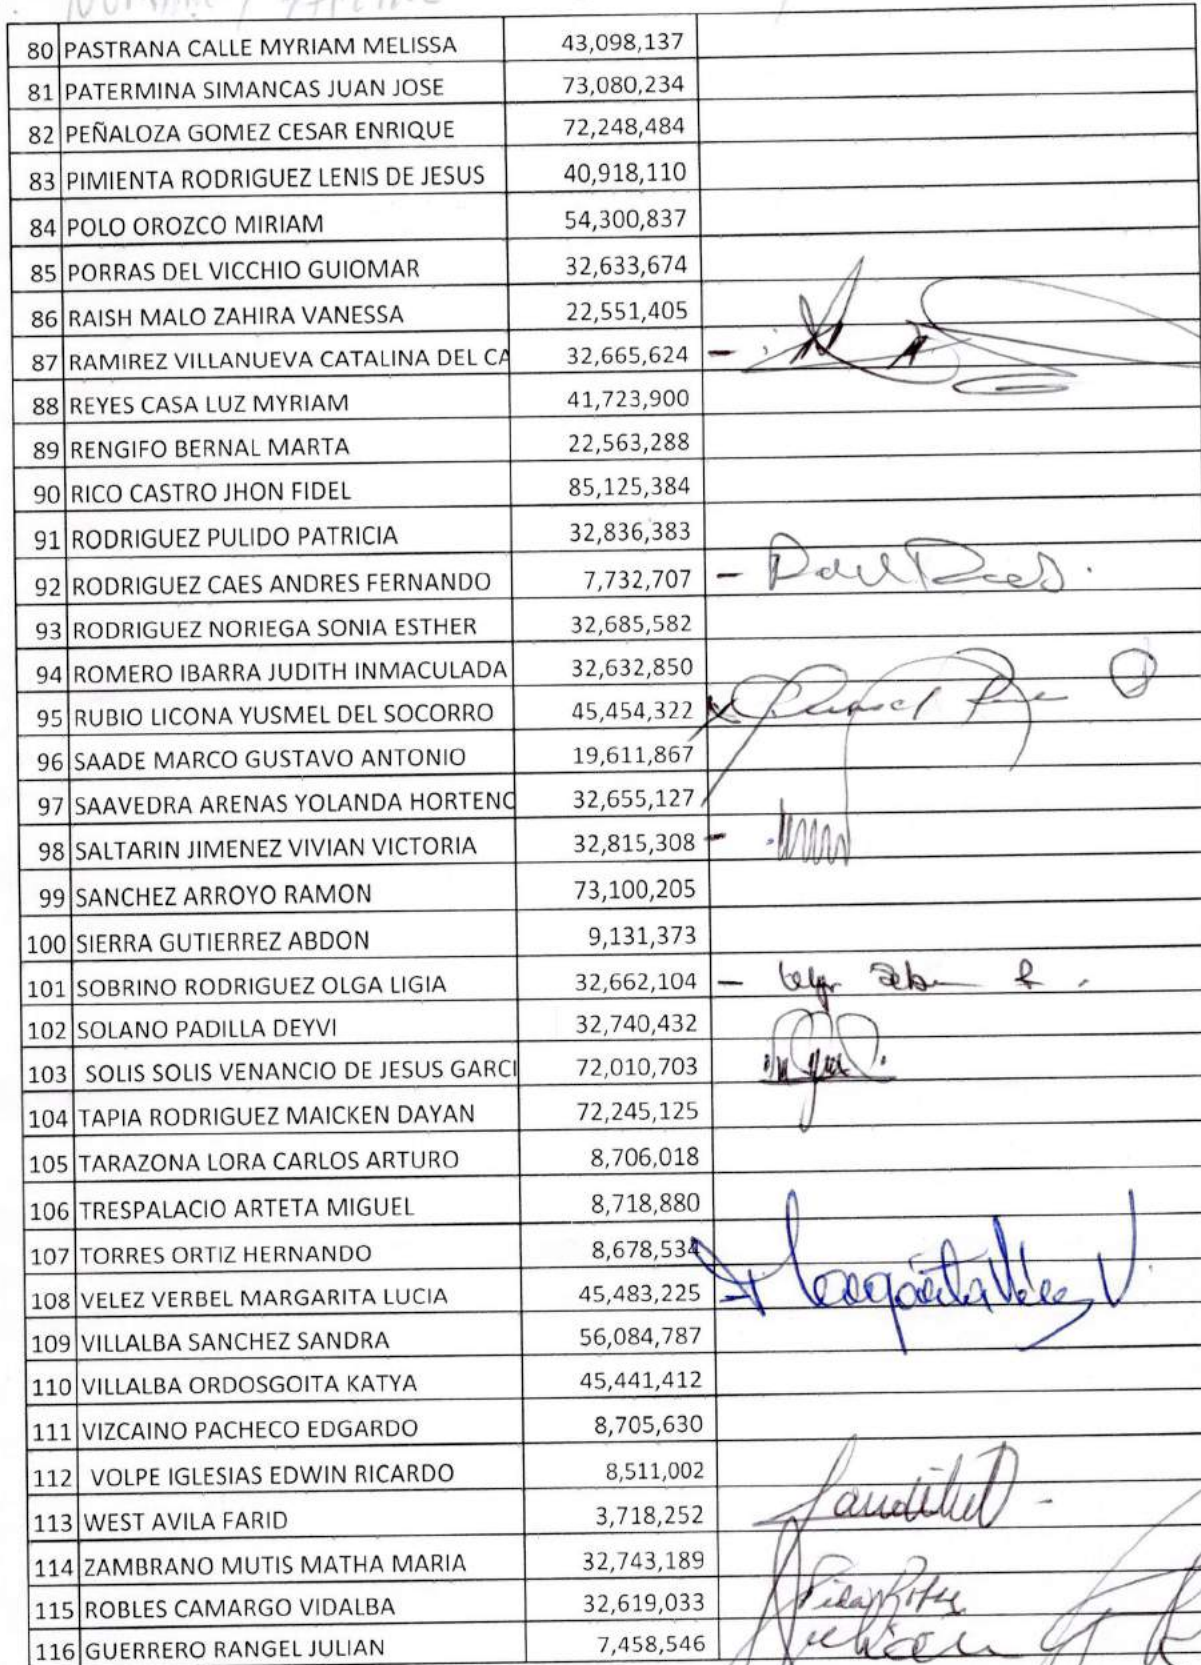 80 PASTRANA CALLE MYRIAM MELISSA 43,098,137
81 PATERMINA SIMANCAS JUAN JOSE 73,080,234
82 PEÑALOZA GOMEZ CESAR ENRIQUE 72,248,484
83 PIMIENTA RODRIGUEZ LENIS DE JESUS 40,918,110
84 POLO OROZCO MIRIAM 54,300,837
85 PORRAS DEL VICCHIO GUIOMAR 32,633,674
86 RAISH MALO ZAHIRA VANESSA 22,551,405
87 RAMIREZ VILLANUEVA CATALINA DEL CA 32,665,624
88 REYES CASA LUZ MYRIAM 41,723,900
89 RENGIFO BERNAL MARTA 22,563,288
90 RICO CASTRO JHON FIDEL 85,125,384
91 RODRIGUEZ PULIDO PATRICIA 32,836,383
92 RODRIGUEZ CAES ANDRES FERNANDO 7,732,707
93 RODRIGUEZ NORIEGA SONIA ESTHER 32,685,582
94 ROMERO IBARRA JUDITH INMACULADA 32,632,850
95 RUBIO LICONA YUSMEL DEL SOCORRO 45,454,322
96 SAADE MARCO GUSTAVO ANTONIO 19,611,867
97 SAAVEDRA ARENAS YOLANDA HORTENC 32,655,127
98 SALTARIN JIMENEZ VIVIAN VICTORIA 32,815,308
99 SANCHEZ ARROYO RAMON 73,100,205
100 SIERRA GUTIERREZ ABDON 9,131,373
101 SOBRINO RODRIGUEZ OLGA LIGIA 32,662,104
102 SOLANO PADILLA DEYVI 32,740,432
103 SOLIS SOLIS VENANCIO DE JESUS GARCI 72,010,703
104 TAPIA RODRIGUEZ MAICKEN DAYAN 72,245,125
105 TARAZONA LORA CARLOS ARTURO 8,706,018
106 TRESPALACIO ARTETA MIGUEL 8,718,880
107 TORRES ORTIZ HERNANDO 8,678,534
108 VELEZ VERBEL MARGARITA LUCIA 45,483,225 Margarita Velez V
109 VILLALBA SANCHEZ SANDRA 56,084,787
110 VILLALBA ORDOSGOITA KATYA 45,441,412
111 VIZCAINO PACHECO EDGARDO 8,705,630
112 VOLPE IGLESIAS EDWIN RICARDO 8,511,002
113 WEST AVILA FARID 3,718,252
114 ZAMBRANO MUTIS MATHA MARIA 32,743,189
115 ROBLES CAMARGO VIDALBA 32,619,033
116 GUERRERO RANGEL JULIAN 7,458,546